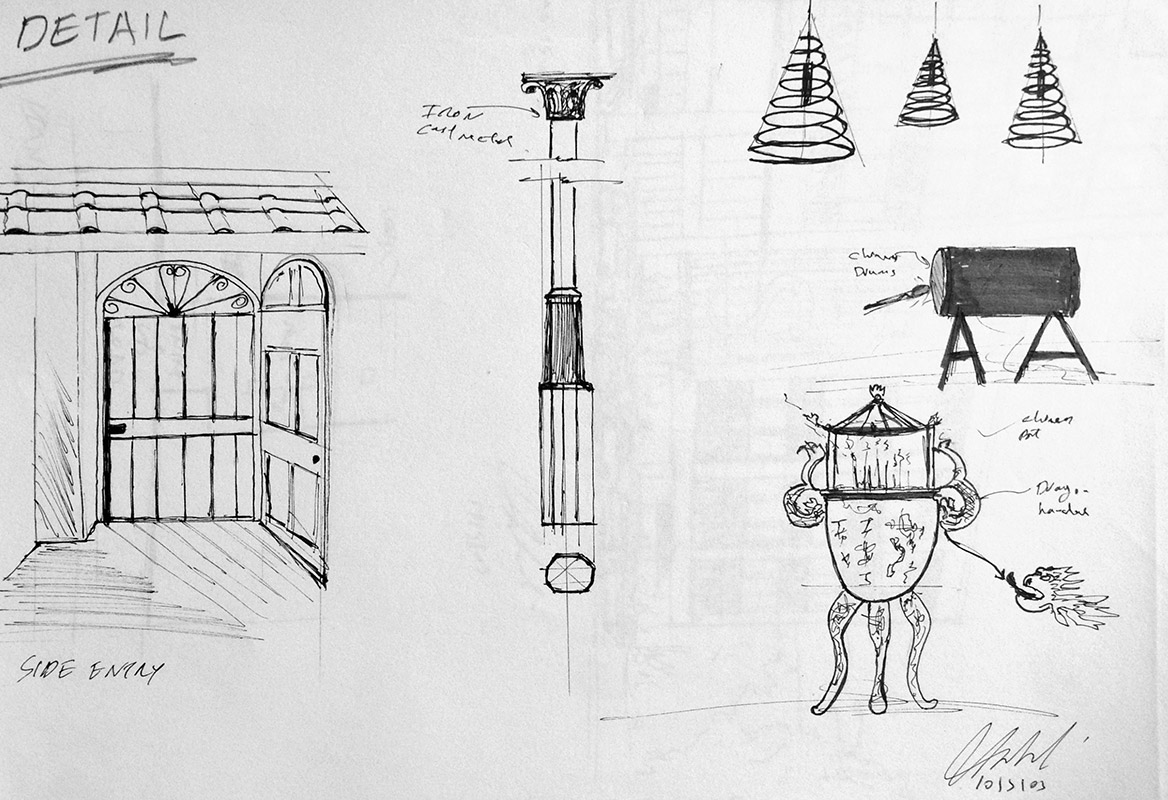 DETAIL
IRON
Cast metal
Chinese
Drums
Chinese
Pot
Dragon
handles
SIDE ENTRY
10/3/03